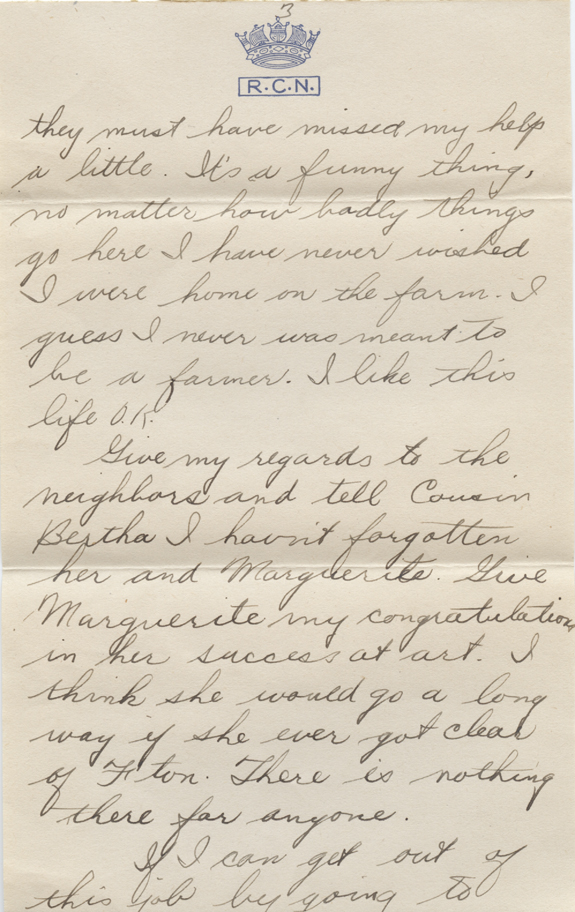 3
R.C.N.
they must have missed my help
a little. It's a funny thing,
no matter how badly things
go here I have never wished
I were home on the farm. I
guess I never was meant to
be a farmer. I like this
life O.K.
Give my regards to the
neighbors and tell Cousin
Bertha I havn't forgotten
her and Marguerite. Give
Marguerite my congratulations
in her success at art. I
think she would go a long
way if she ever got clear
of F'ton. There is nothing
there for anyone.
If I can get out of
this job by going to